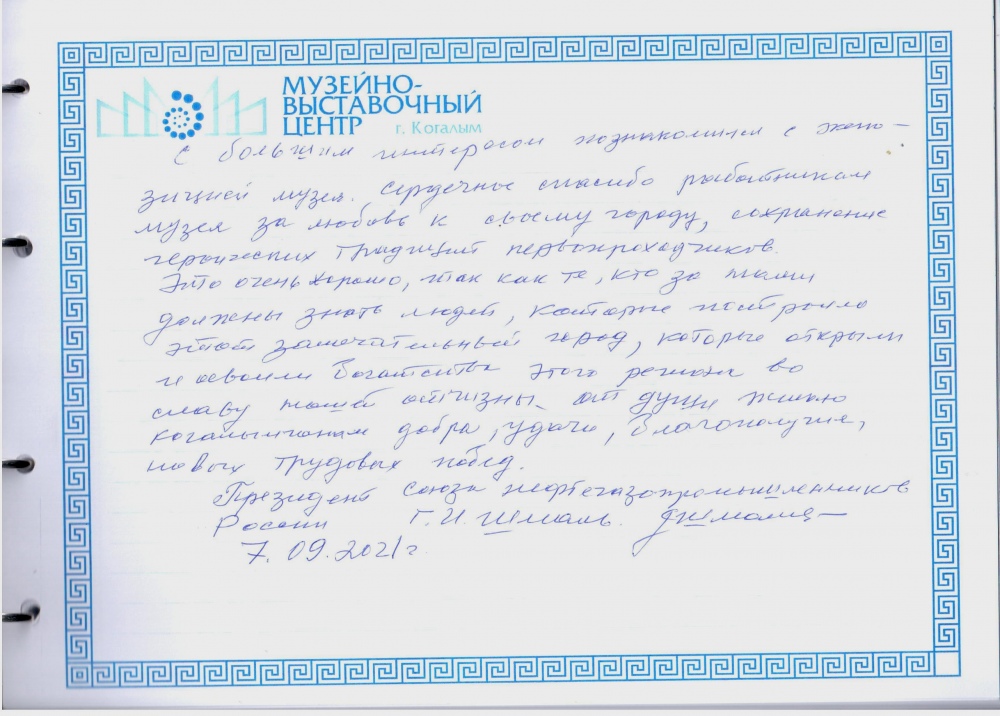 МУЗЕЙНО-
ВЫСТАВОЧНЫЙ
ЦЕНТР г. Когалым
С большим интересом познакомился с экспо-
зицией музея. Сердечное спасибо работникам
музея за любовь к своему городу, сохранение
героических традиций первопроходчиков.
Это очень хорошо, так как те, кто за нами
должны знать людей, которые построили
этот замечательный город, которые открыли
и освоили богатства этого региона во
славу нашей отчизны. От души желаю
когалымчанам добра, удачи, благополучия,
новых трудовых побед.
Президент Союза нефтегазопромышленников
России Г.И. Шмаль.
7.09.2021г.